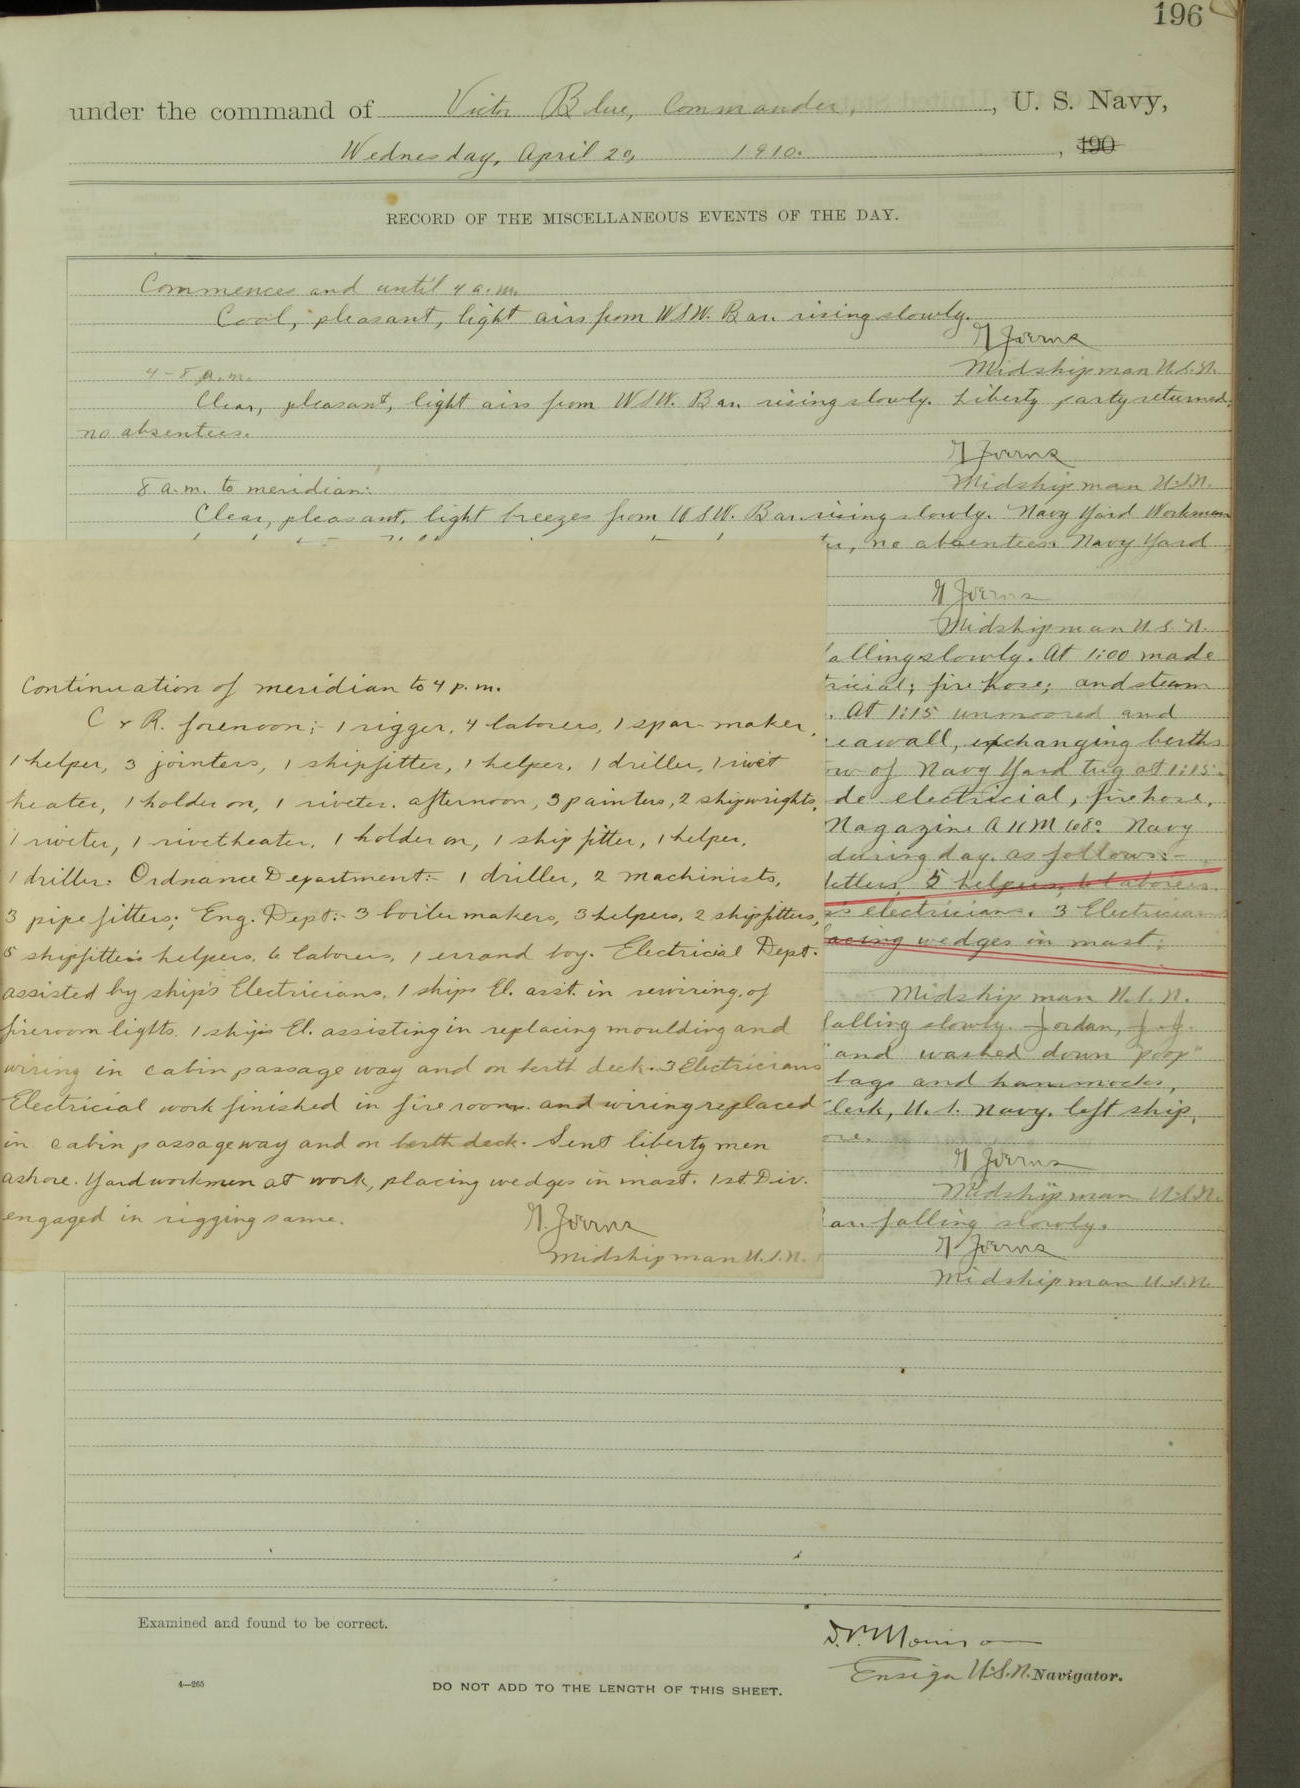 196
under the command of Victor Blue, Commander, , U. S. Navy,
Wednesday, April 20, 1910. , 190
RECORD OF THE MISCELLANEOUS EVENTS OF THE DAY.
Commences and until 4 a.m.
Cool, pleasant, light airs from WSW. Bar. rising slowly.
Midshipman U.S.N.
4-8 a.m.
Clear, pleasant, light airs from WSW. Bar. rising slowly. Liberty party returned;
no absentees.
Midshipman U.S.N.
8 a.m. to meridian:
Clear, pleasant, light breezes from WSW. Bar. rising slowly. Navy Yard Workmen
no absentees Navy Yard
Midshipman U.S.N.
falling slowly. At 1:00 made
fire hose; and steam
. At 1:15 unmoored and
exchanging berths
of Navy Yard tug at 1:15.
electricial, fire hose,
Magazine A.M. 68° Navy
during day as follows:-
5 helpers, 6 laborers.
electricians. 3 Electricians
wedges in mast.
Midshipman U.S.N.
falling slowly. Jordan, J.J.
and washed down "poop"
bags and hammocks,
U.S. Navy. left ship,
Midshipman U.S.N.
falling slowly.
Midshipman U.S.N.
Continuation of meridian to 4 p.m.
C & R. forenoon;- 1 rigger, 4 laborers, 1 spar-maker,
1 helper, 3 jointers, 1 shipfitter, 1 helper, 1 driller, 1 rivet
heater, 1 holder on, 1 riveter. afternoon, 3 painters, 2 shipwrights,
1 riveter, 1 rivetheater, 1 holder on, 1 ship fitter, 1 helper,
1 driller. Ordnance Department:- 1 driller, 2 machinists,
3 pipe fitters; Eng. Dept:- 3 boiler makers, 3 helpers, 2 shipfitters,
5 shipfitter's helpers, 6 laborers, 1 errand boy. Electricial Dept.
assisted by ship's Electricians, 1 ships El. asst. in rewiring of
fireroom lights. 1 ship's El. assisting in replacing moulding and
wiring in cabin passage way and on berth deck. 3 Electricians
Electricial work finished in fire room. and wiring replaced
in cabin passageway and on berth deck. Sent liberty men
ashore. Yard workmen at work, placing wedges in mast. 1st. Div.
engaged in rigging same.
Midshipman U.S.N.
Examined and found to be correct.
Ensign U.S.N. Navigator.
4—265
DO NOT ADD TO THE LENGTH OF THIS SHEET.